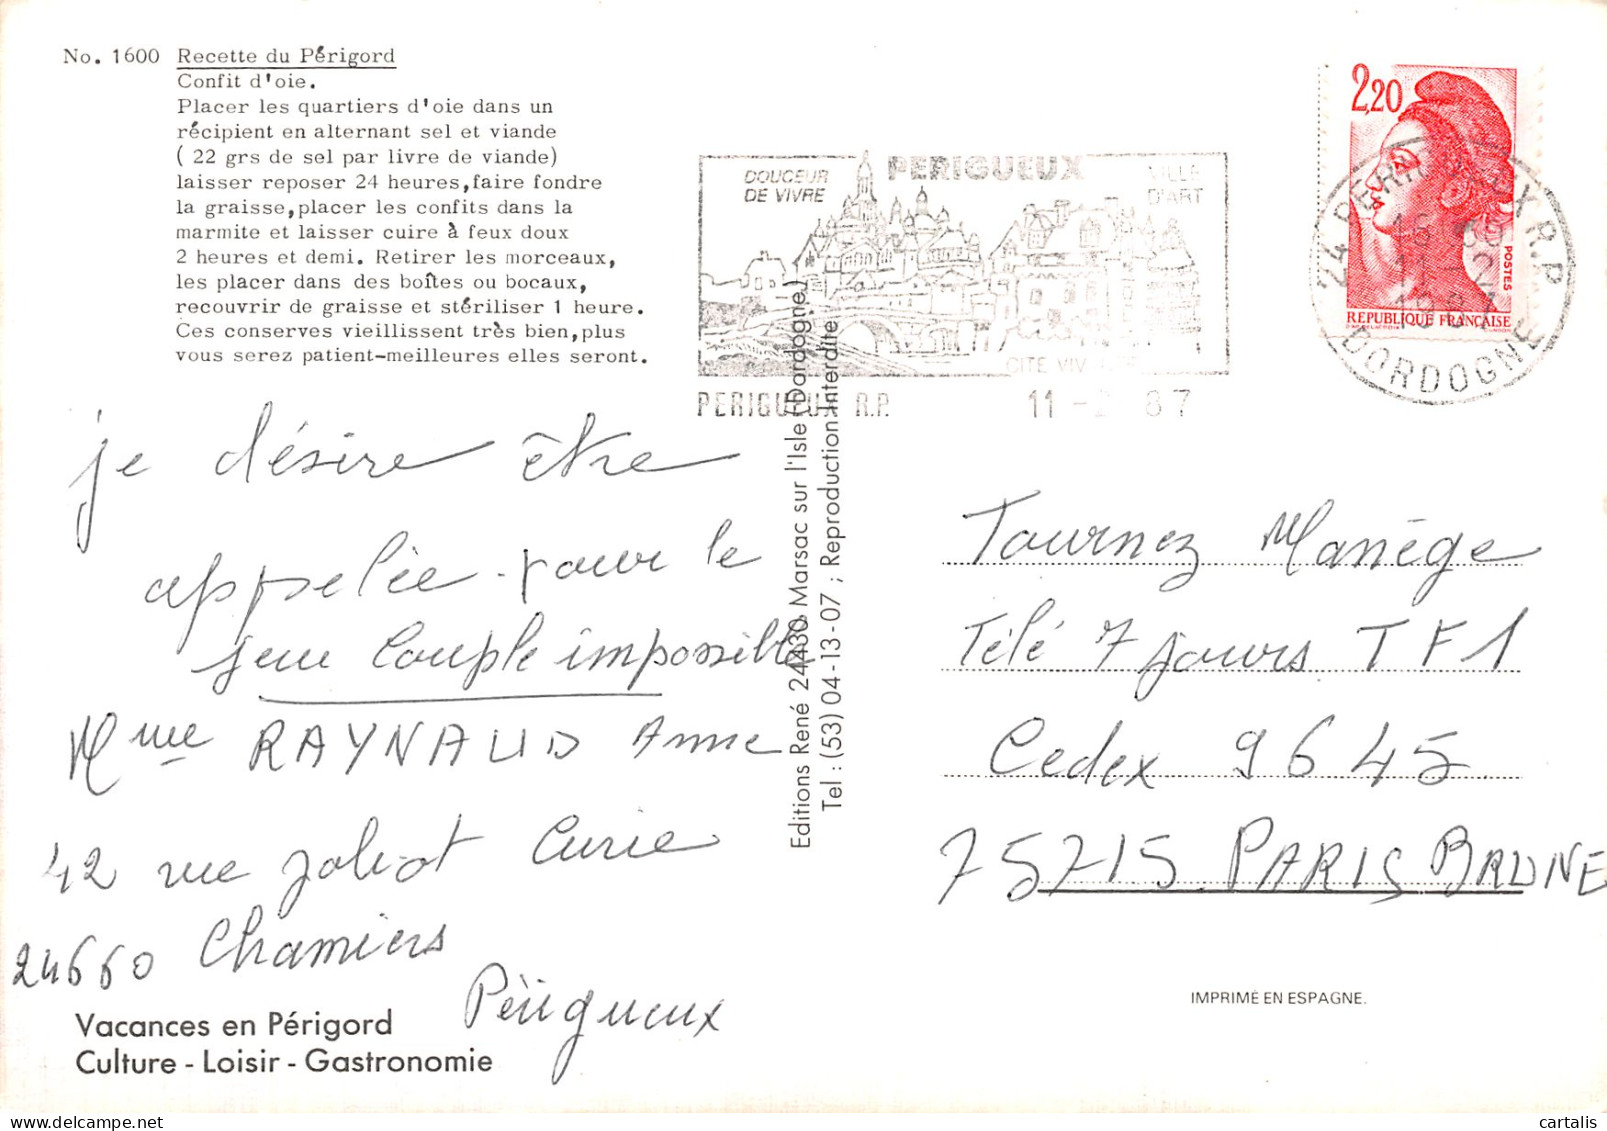 No. 1600 Recette du Périgord
Confit d'oie.
Placer les quartiers d'oie dans un
récipient en alternant sel et viande
( 22 grs de sel par livre de viande)
laisser reposer 24 heures,faire fondre
la graisse,placer les confits dans la
marmite et laisser cuire à feux doux
2 heures et demi. Retirer les morceaux,
les placer dans des boîtes ou bocaux,
recouvrir de graisse et stériliser 1 heure.
Ces conserves vieillissent très bien,plus
vous serez patient-meilleures elles seront.
je désire être
appelée pour le
jeu Couple impossible
Mme RAYNAUD Anne
42 rue Joliot Curie
24660 Chamiers
Périgueux
Vacances en Périgord
Culture - Loisir - Gastronomie
Editions René 24430 Marsac sur l'Isle (Dordogne)
Tel : (53) 04-13-07 ; Reproduction Interdite
DOUCEUR
DE VIVRE
PERIGUEUX
VILLE
D'ART
CITE
PERIGUEUX R.P. 11 - 87
2,20
POSTES
REPUBLIQUE FRANÇAISE
24 PERIGUEUX R.P.
DORDOGNE
Tournez Manège
Télé 7 jours TF1
Cedex 9645
75715 PARIS BRUNE
IMPRIMÉ EN ESPAGNE.
cartalis
www.delcampe.net